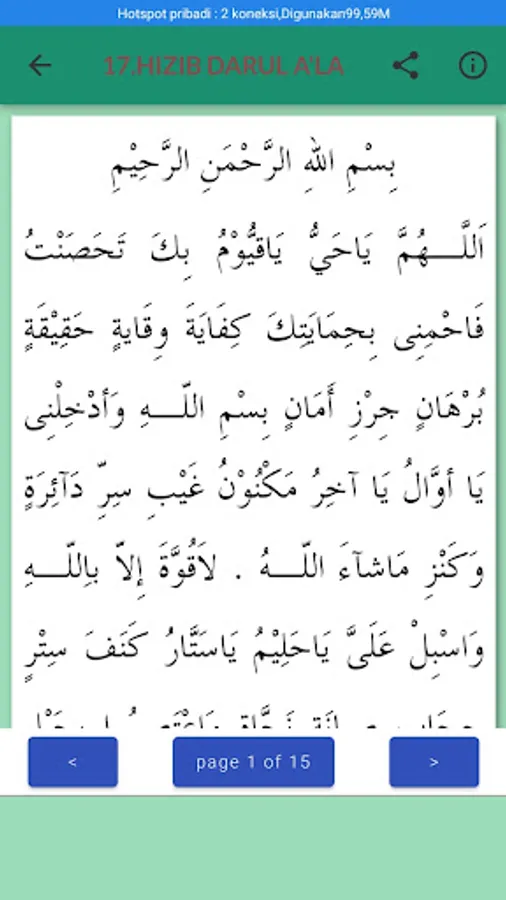 Hotspot pribadi : 2 koneksi,Digunakan99,59M
17.HIZIB DARUL A'LA
بِسْمِ اللهِ الرَّحْمَنِ الرَّحِيْمِ
اَللَّـــهُمَّ يَاحَيُّ يَاقَيُّوْمُ بِكَ تَحَصَنْتُ
فَاحْمِنِى بِحِمَايَتِكَ كِفَايَةَ وِقَايةٍ حَقِيْقَةٍ
بُرْهَانٍ حِرْزِ أَمَانٍ بِسْمِ اللّـــهِ وَأدْخِلْنِى
يَا أوَّالُ يَا آخِرُ مَكْنُوْنُ غَيْبِ سِرِّ دَآئِرَةٍ
وَكَنْزِ مَاشآءَ اللّـــهُ . لاَقُوَّةَ إِلاّ بِاللّـــهِ
وَاسْبِلْ عَلَىَّ يَاحَلِيْمُ يَاسَتَّارُ كَنَفَ سِتْرٍ
<
page 1 of 15
>